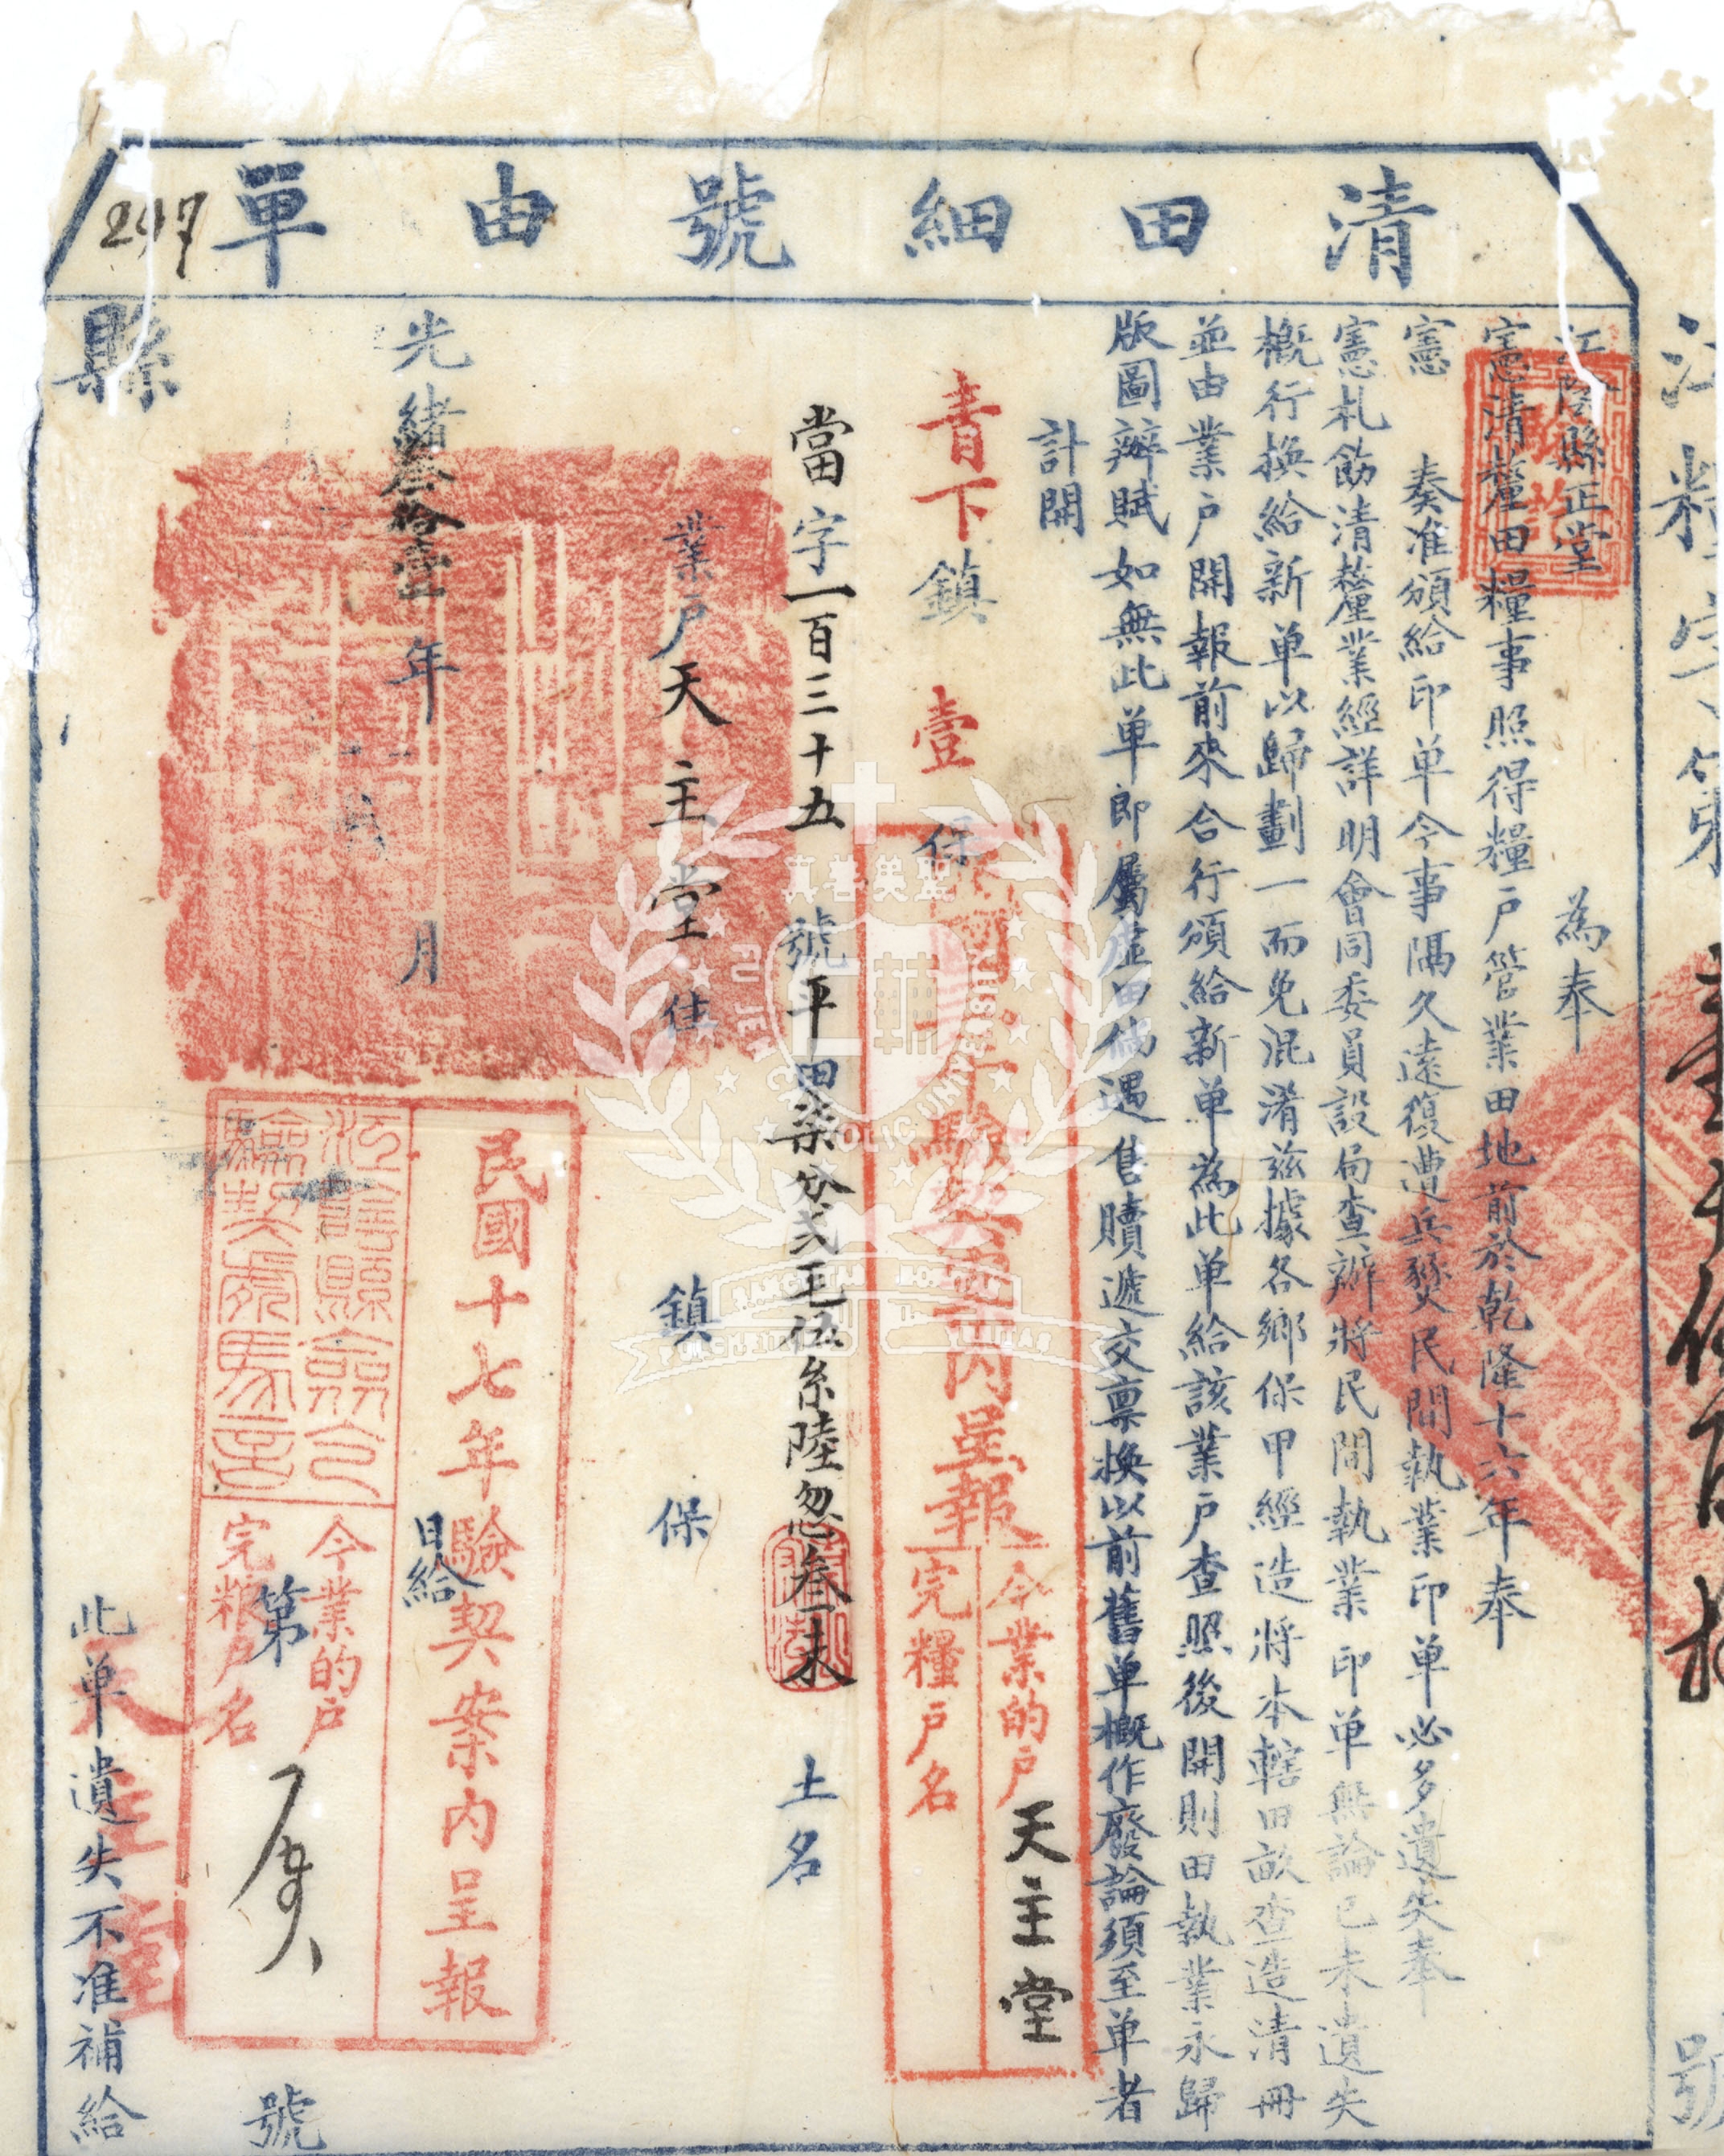 清田細號由單
297
江陰縣正堂 為奉
憲清釐田糧事照得糧戶管業田地前於乾隆十六年奉
憲 奏准頒給印單今事隔久遠復遭兵燹民間執業印单必多遺失奉
憲札飭清釐業經詳明會同委員設局查辦將民間執業印单無論已未遺失
概行換給新单以歸劃一而免混淆茲據各鄉保甲經造將本轄田畝查造清冊
並由業户開報前來合行頒給新单為此单給該業户查照後開則田執業永歸
版圖辦賦如無此单即屬虛田倘遇售贖遞交稟換以前舊单概作廢論須至单者
計開
青下鎮 壹 保
年驗契案內呈報
今業的户 天主堂
完糧户名
當字一百三十五 號平田柒分弍毛伍糸陸忽叁末 土名
業户天主堂 住 鎮 保
光緒叁拾壹年 月 日給
民國十七年驗契案內呈報
江陰縣
驗契
今業的户
完粮户名
第 號
縣
此单遺失不准補給
天主堂
號